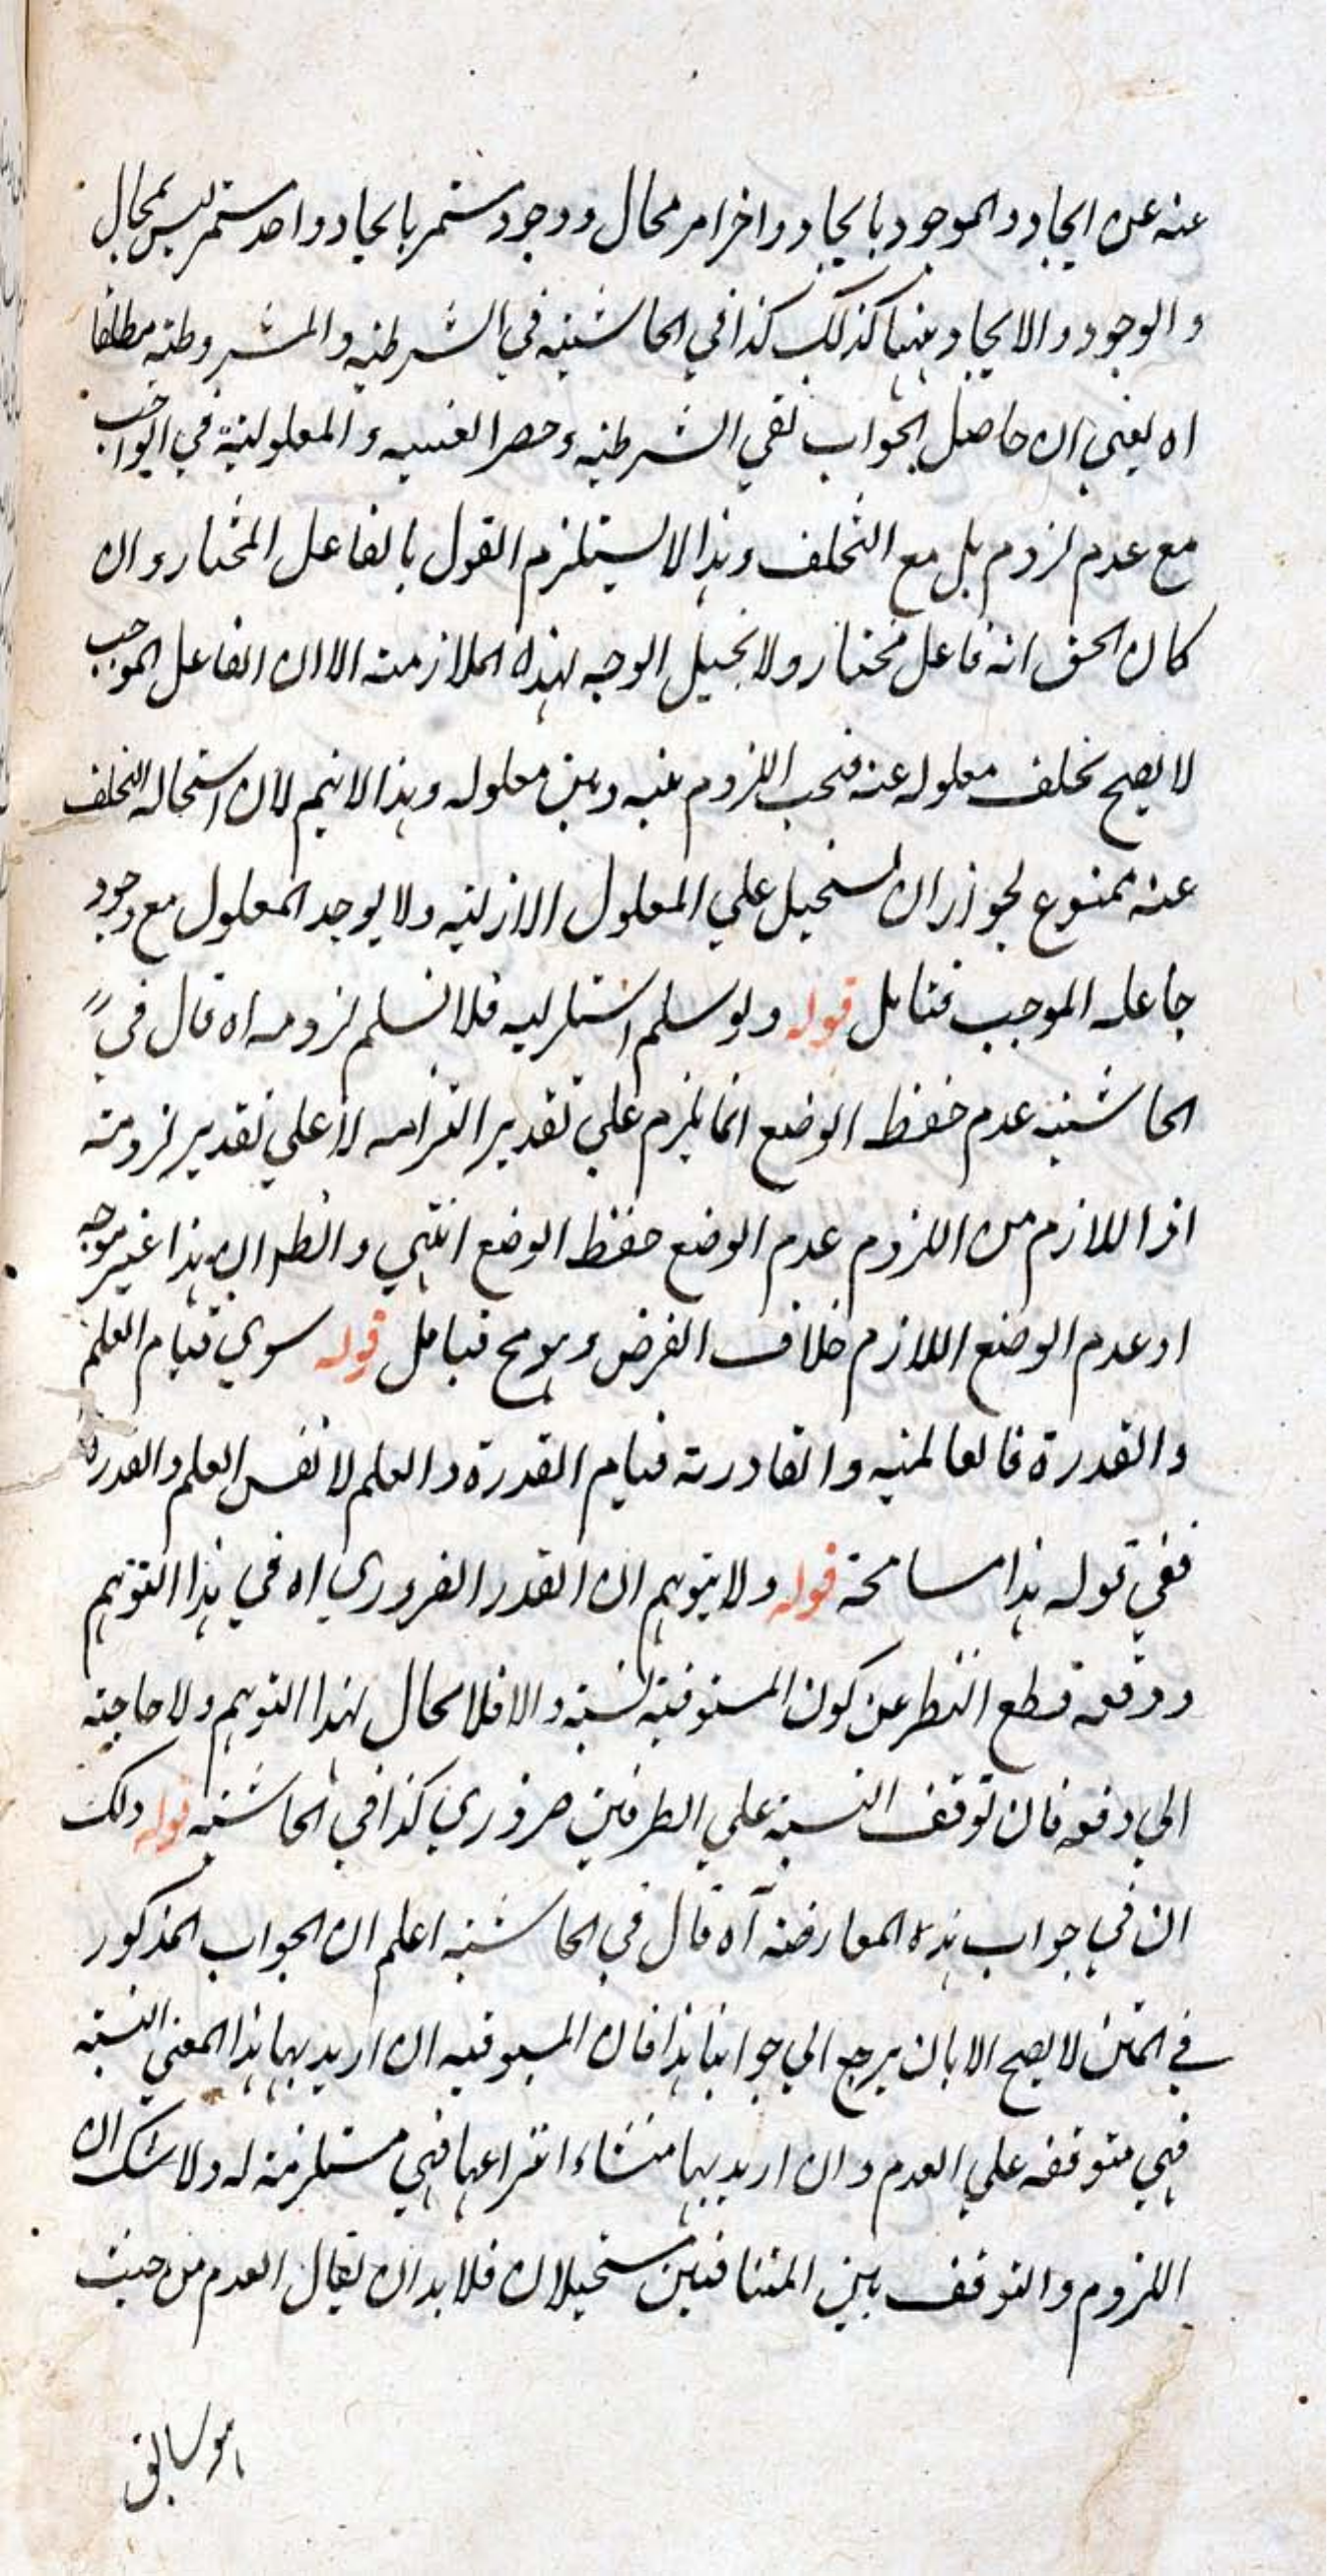 عنه عن ايجاد والموجود بايجاد واخر امر محال ووجود مستمر بايجاد واحد مستمر ليس بمحال
والوجود والايجاد منها كذلك كذا في الحاشيه في الشرطيه والمشروطيه مطلقا
اه يعني ان حاصل الجواب نفي الشرطيه وحصر العليه والمعلولية في الواجب
مع عدم لزوم بل مع التخلف وهذا لا يستلزم القول بالفاعل المختار وان
كان الحق انه فاعل مختار ولا يخيل الوجه لهذه الملازمته الا ان الفاعل الموجب
لا يصح تخلف معلوله عنه فيجب اللزوم بينه وبين معلوله وهذا لا يتم لان استحاله التخلف
عنه ممنوع لجواز ان يستحيل علي المعلول الازليه ولا يوجد المعلول مع وجود
جاعله الموجب فتامل قوله ولو سلم استلزامه فلا نسلم لزومه اه قال في
الحاشيه عدم حفظ الوضع انما يلزم علي تقدير التزامه لا علي تقدير لزومه
اذ اللازم من اللزوم عدم الوضع حفظ الوضع انتهي والظ ان هذا غير موجه
اذ عدم الوضع اللازم خلاف الفرض وهو مح فتامل قوله سوي قيام العلم
والقدرة فالعالميه والقادريه قيام القدرة والعلم لا نفس العلم والقدرة
ففي قوله هذا مسامحة قوله ولا يتوهم ان القدر الضروري اه في هذا التوهم
ودفعه قطع النظر عن كون المسبوقيه نسبته والا فلا مجال لهذا التوهم ولا حاجته
الي دفعه فان توقف النسبة علي الطرفين ضروري كذا في الحاشيه قوله ولك
ان في جواب هذه المعارضه آه قال في الحاشيه اعلم ان الجواب المذكور
في المتن لا يصح الا بان يرجع الي جوابنا هذا فان المسبوقيه ان اريد بها هذا المعني النسبته
فهي متوقفه علي العدم وان اريد بها منشاء انتزاعها فهي مستلزمة له ولا شك ان
اللزوم والتوقف بين المتنافيين مستحيلان فلا بد ان يقال العدم من حيث
هو سابق